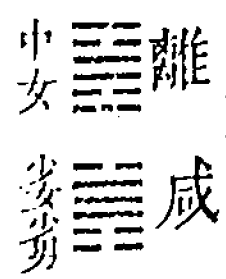 中女 離
少女少男 咸